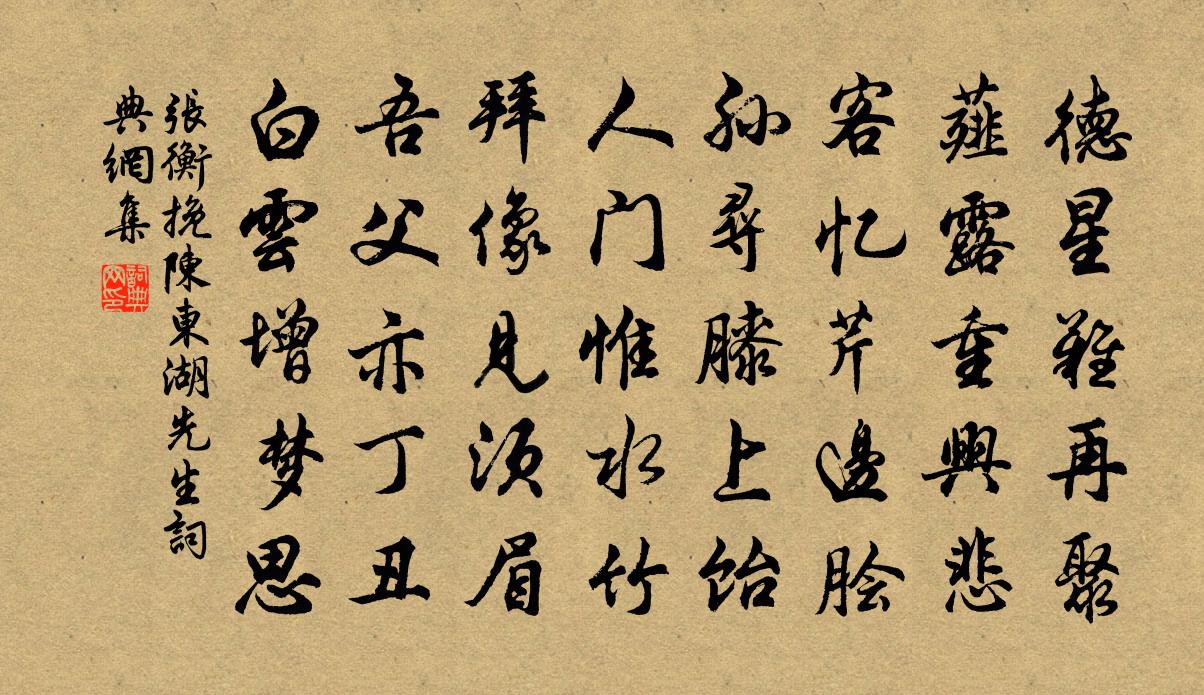 德星難再聚
薤露重興悲
客忆芹邊脍
孙尋膝上饴
人门惟水竹
拜像見須眉
吾父亦丁丑
白雲增梦思
張衡挽陳東湖先生詞
典網集
詞典
网印